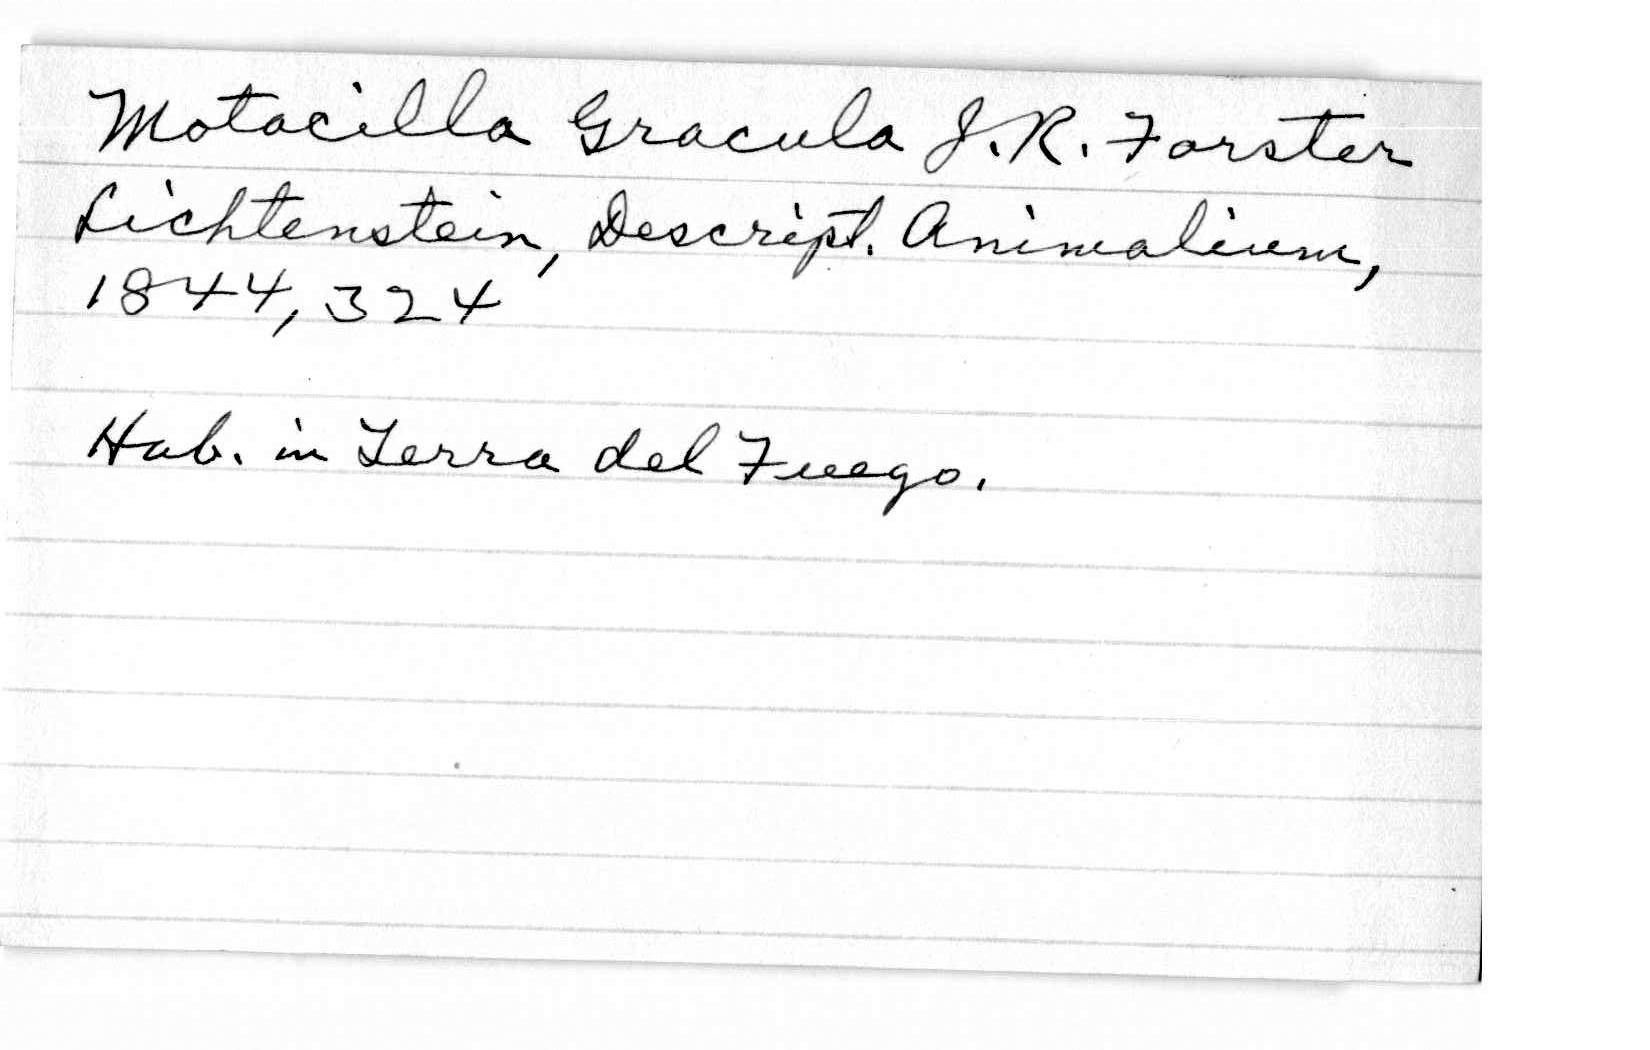 Motacilla Gracula J. R. Forster
Lichtenstein, Descript. Animalium,
1844, 324
Hab. in Terra del Fuego.